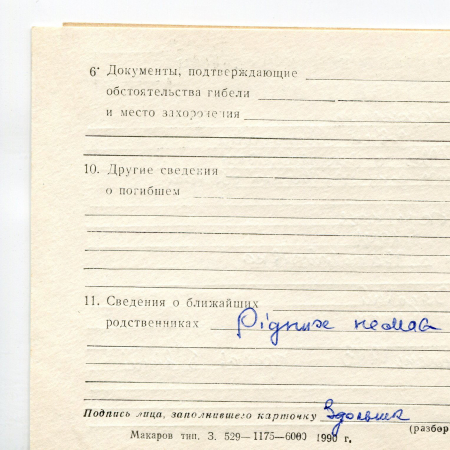 6. Документы, подтверждающие
обстоятельства гибели
и место захоронения
10. Другие сведения
о погибшем
11. Сведения о ближайших
родственниках Рідних немає
Подпись лица, заполнившего карточку
(разбор
Макаров тип. З. 529—1175—6000 1990 г.